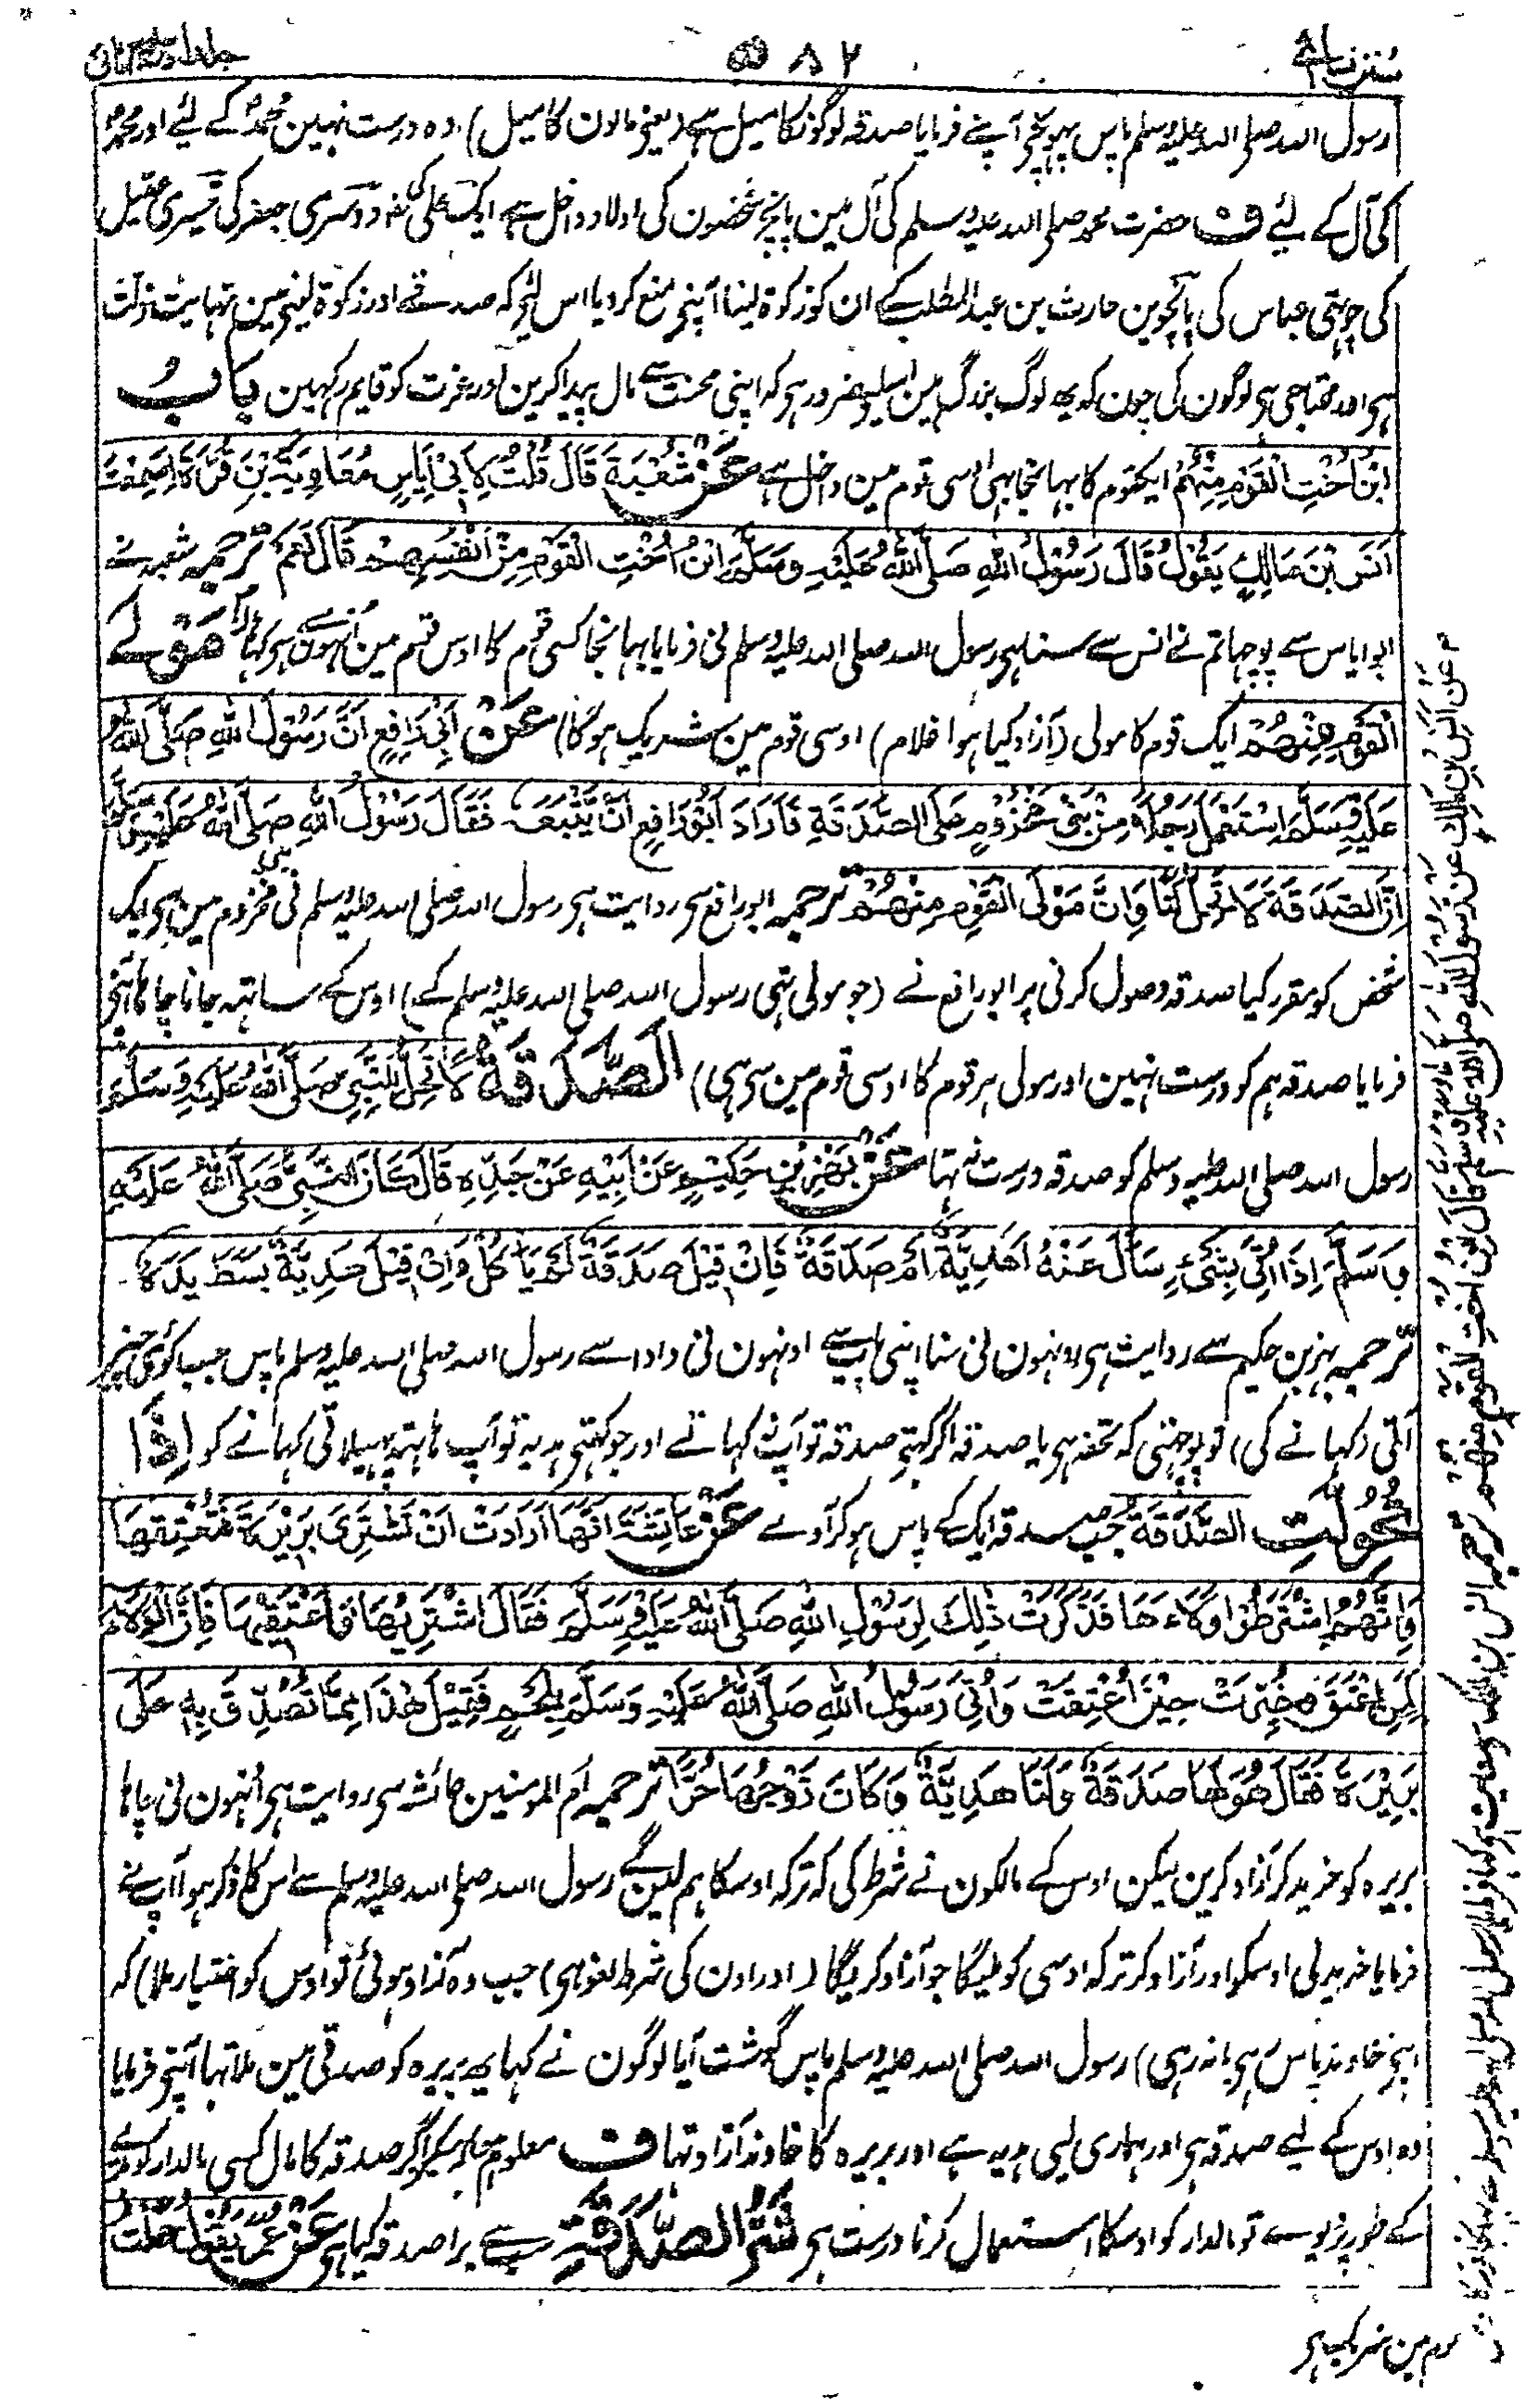 سنن نسائی ۵۸۲ جلد اول
رسول اللہ صلی اللہ علیہ وسلم پاس پہونچے آپنے فرمایا صدقہ لوگونکا میل ہے (یعنی مالون کا میل) وہ درست نہین محمدؐ کے لیے اور محمدؐ
کی آل کے لیے ف حضرت محمد صلی اللہ علیہ وسلم کی آل مین پانچ شخصون کی اولاد داخل ہے ایک علی کی دوسری جعفر کی تیسری عقیل
کی چوتھی عباس کی پانچوین حارث بن عبدالمطلب کے ان کو زکوۃ لینا آپنے منع کردیا اس لئے کہ صدقے اور زکوۃ لینے مین نہایت ذلت
ہی اور محتاجی ہی لوگون کی چون کہ یہ لوگ بزرگ ہین اسلیے ضرور ہی کہ اپنی محنت سے مال پیدا کرین اور عزت کو قایم رکہین بابُ
ابْنُ اُخْتِ الْقَوْمِ مِنْهُمْ ایکقوم کا بہانجا بہی اوسی قوم مین داخل ہے عَنْ شُعْبَةَ قَالَ قُلْتُ لِاَبِيْ اِيَاسٍ مُعَاوِيَةَ بْنِ قُرَّةَ اَسَمِعْتَ
اَنَسَ بْنَ مَالِكٍ يَقُوْلُ قَالَ رَسُوْلُ اللّٰهِ صَلَّى اللّٰهُ عَلَيْهِ وَسَلَّمَ ابْنُ اُخْتِ الْقَوْمِ مِنْ اَنْفُسِهِمْ قَالَ نَعَمْ ترجمہ شعبہ نے
ابو ایاس سے پوچہا تم نے انس سے سنا ہی رسول اللہ صلی اللہ علیہ وسلم نی فرمایا بہانجا کسی قوم کا اوس قوم مین انہون نے کہا ہان مَوْلَى
الْقَوْمِ مِنْهُمْ ایک قوم کا مولی (آزاد کیا ہوا غلام) اوسی قوم مین شریک ہوگا) عَنْ اَبِيْ رَافِعٍ اَنَّ رَسُوْلَ اللّٰهِ صَلَّى اللّٰهُ
عَلَيْهِ وَسَلَّمَ اسْتَعْمَلَ رَجُلًا مِنْ بَنِيْ مَخْزُوْمٍ عَلَى الصَّدَقَةِ فَاَرَادَ اَبُوْرَافِعٍ اَنْ يَتْبَعَهٗ فَقَالَ رَسُوْلُ اللّٰهِ صَلَّى اللّٰهُ عَلَيْهِ وَسَلَّمَ
اِنَّ الصَّدَقَةَ لَا تَحِلُّ لَنَا وَاِنَّ مَوْلَى الْقَوْمِ مِنْهُمْ ترجمہ ابو رافع سی روایت ہی رسول اللہ صلی اللہ علیہ وسلم نی بنی مخزوم مین سی ایک
شخص کو مقرر کیا صدقہ وصول کرنی پر ابو رافع نے (جو مولی تہی رسول اللہ صلی اللہ علیہ وسلم کے) اوس کے ساتہہ جانا چاہا آپنی
فرمایا صدقہ ہم کو درست نہین اور مولی ہر قوم کا اوسی قوم مین سی ہی) اَلصَّدَقَةُ لَا تَحِلُّ لِلنَّبِيِّ صَلَّى اللّٰهُ عَلَيْهِ وَسَلَّمَ
رسول اللہ صلی اللہ علیہ وسلم کو صدقہ درست نہ تہا عَنْ بَهْزِ بْنِ حَكِيْمٍ عَنْ اَبِيْهِ عَنْ جَدِّهٖ قَالَ كَانَ النَّبِيُّ صَلَّى اللّٰهُ عَلَيْهِ
وَسَلَّمَ اِذَا اُتِيَ بِشَيْءٍ سَاَلَ عَنْهُ اَهَدِيَّةٌ اَمْ صَدَقَةٌ فَاِنْ قِيْلَ صَدَقَةٌ لَمْ يَاْكُلْ وَاِنْ قِيْلَ هَدِيَّةٌ بَسَطَ يَدَهٗ
ترجمہ بہز بن حکیم سے روایت ہی اونہون نی سنا اپنی باپ سے اونہون نی دادا سے رسول اللہ صلی اللہ علیہ وسلم پاس جب کوئی چیز
آتی (کہانے کی) تو پوچہتی کہ تحفہ ہی یا صدقہ اگر کہتے صدقہ تو آپ نہ کہاتے اور جو کہتی ہدیہ تو آپ ہاتہہ پہیلاتی کہانے کو اِذَا
تَحَوَّلَتِ الصَّدَقَةُ جب صدقہ ایک کے پاس ہو کر آوے عَنْ عَائِشَةَ اَنَّهَا اَرَادَتْ اَنْ تَشْتَرِيَ بَرِيْرَةَ فَتُعْتِقَهَا
وَاِنَّهُمُ اشْتَرَطُوْا وَلَاءَهَا فَذَكَرَتْ ذٰلِكَ لِرَسُوْلِ اللّٰهِ صَلَّى اللّٰهُ عَلَيْهِ وَسَلَّمَ فَقَالَ اشْتَرِيْهَا فَاَعْتِقِيْهَا فَاِنَّ الْوَلَاءَ
لِمَنْ اَعْتَقَ وَخُيِّرَتْ حِيْنَ اُعْتِقَتْ وَاُتِيَ رَسُوْلُ اللّٰهِ صَلَّى اللّٰهُ عَلَيْهِ وَسَلَّمَ بِلَحْمٍ فَقِيْلَ هٰذَا مِمَّا تُصُدِّقَ بِهٖ عَلٰى
بَرِيْرَةَ فَقَالَ هُوَ لَهَا صَدَقَةٌ وَلَنَا هَدِيَّةٌ وَكَانَ زَوْجُهَا حُرًّا ترجمہ ام المومنین عائشہ سی روایت ہی اُنہون نی چاہا
بریرہ کو خرید کر آزاد کرین لیکن اوس کے مالکون نے شرط کی کہ ترکہ اوسکا ہم لین گے رسول اللہ صلی اللہ علیہ وسلم سے اس کا ذکر ہوا آپ نے
فرمایا خرید لی اوسکو اور آزاد کر ترکہ اوسی کو ملیگا جو آزاد کریگا (اور اون کی شرط لغو ہی) جب وہ آزاد ہوئی تو اوس کو اختیار ملا) کہ
اپنے خاوند پاس رہی یا نہ رہی) رسول اللہ صلی اللہ علیہ وسلم پاس گوشت آیا لوگون نے کہا یہ بریرہ کو صدقی مین ملا تہا آپنے فرمایا
وہ اوس کے لیے صدقہ ہی اور ہماری لیی ہدیہ ہے اور بریرہ کا خاوند آزاد تہا ف معلوم ہوا کہ اگر صدقہ کا مال کسی مالدار کو ہدیے
کے طور پر دیوے تو مالدار کو اوسکا استعمال کرنا درست ہی شَرُّ الصَّدَقَةِ سب سے برا صدقہ کیا ہی عَنْ عُمَرَ يَقُوْلُ حَمَلْتُ
عن انس بن مالك عن رسول الله صلى الله عليه وسلم قال ابن اخت القوم منهم ترجمہ انس بن مالک سی روایت ہی کہا فرمایا رسول اللہ صلی اللہ علیہ وسلم نے بہانجا قوم کا
قوم مین شریک ہی